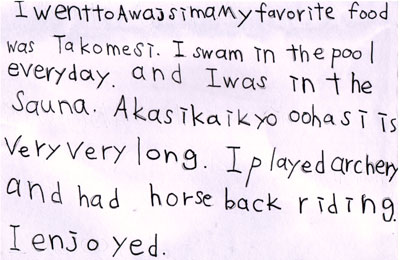 I wenttoAwajsima My favorite food
was Takomesi. I swam in the pool
everyday. and Iwas in the
Sauna. Akasikaikyo oohasi is
Very very long. I played archery
and had horse back riding.
I enjoyed.